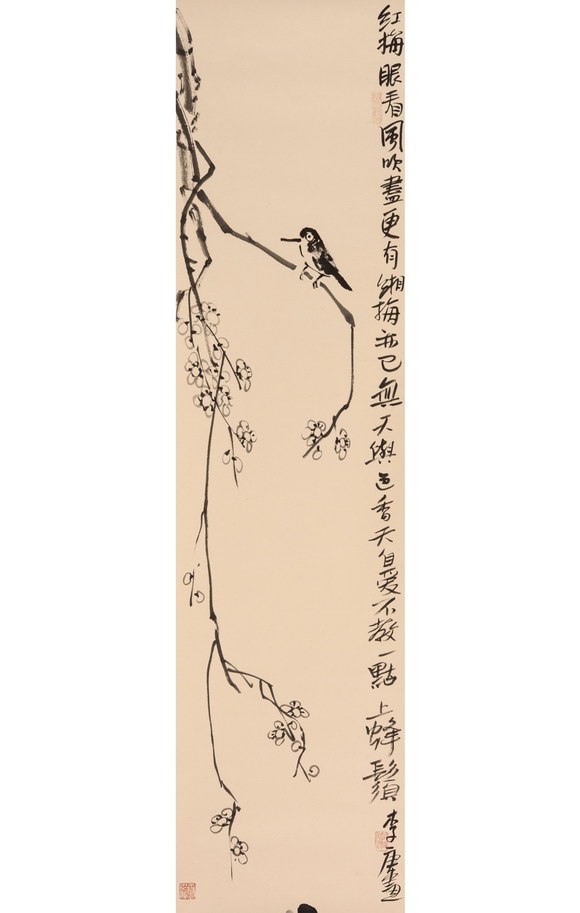 紅梅眼看風吹盡更有緗梅亦已無天與色香天自愛不教一點上蜂鬚李庚畫